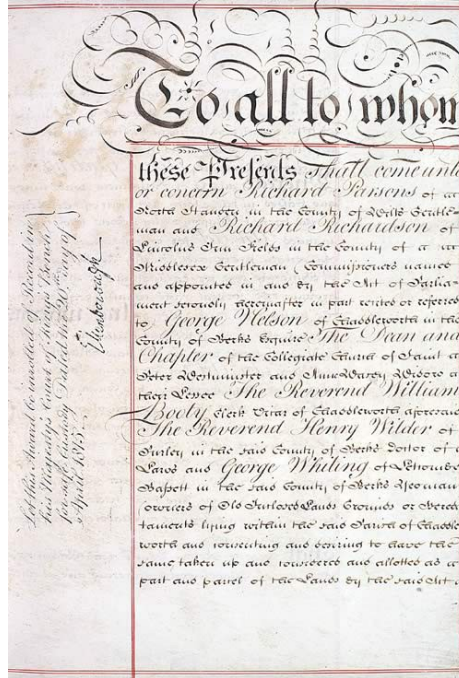 To all to whom
these Presents shall come unto
or concern Richard Parsons of
North Standen in the County of Wilts Gentle-
man and Richard Richardson of
Lincolns Inn Fields in the County of
Middlesex Gentleman Commissioners named
and appointed in and by the Act of Parlia-
ment severally hereinafter in part recited or referred
to, George Nelson of Chaddleworth in the
County of Berks Esquire The Dean and
Chapter of the Collegiate Church of Saint
Peter Westminster and Ann
their Lessee The Reverend William
Booty Clerk Vicar of Chaddleworth aforesaid
The Reverend Henry Wilder of
Purley in the said County of Berks Doctor of
Laws and George Whiting of
Bassett in the said County of Berks Yeoman
owners of Old Inclosed Lands Grounds or Heredi
taments lying within the said Parish of Chaddle
worth and consenting and desiring to have the
same taken up and considered and allotted as a
part and parcel of the Lands by the said Act
Let this Award be inrolled of Record in
his Majestys Court of Kings Bench
for safe Custody Dated this 20th day of
April 1815
Ellenborough